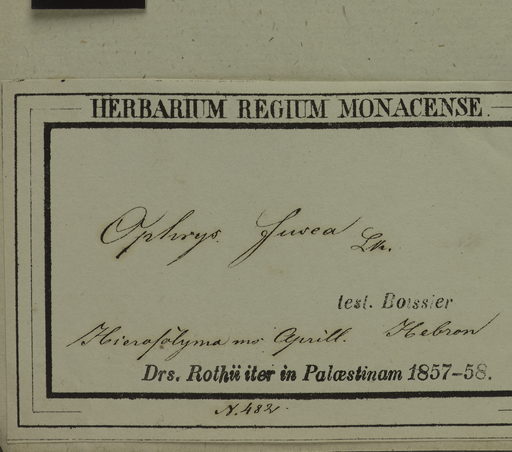 HERBARIUM REGIUM MONACENSE.
Ophrys fusca Lk.
test. Boissier
Hierosolyma ms: Aprill. Hebron
Drs. Rothii iter in Palæstinam 1857-58.
N. 482.